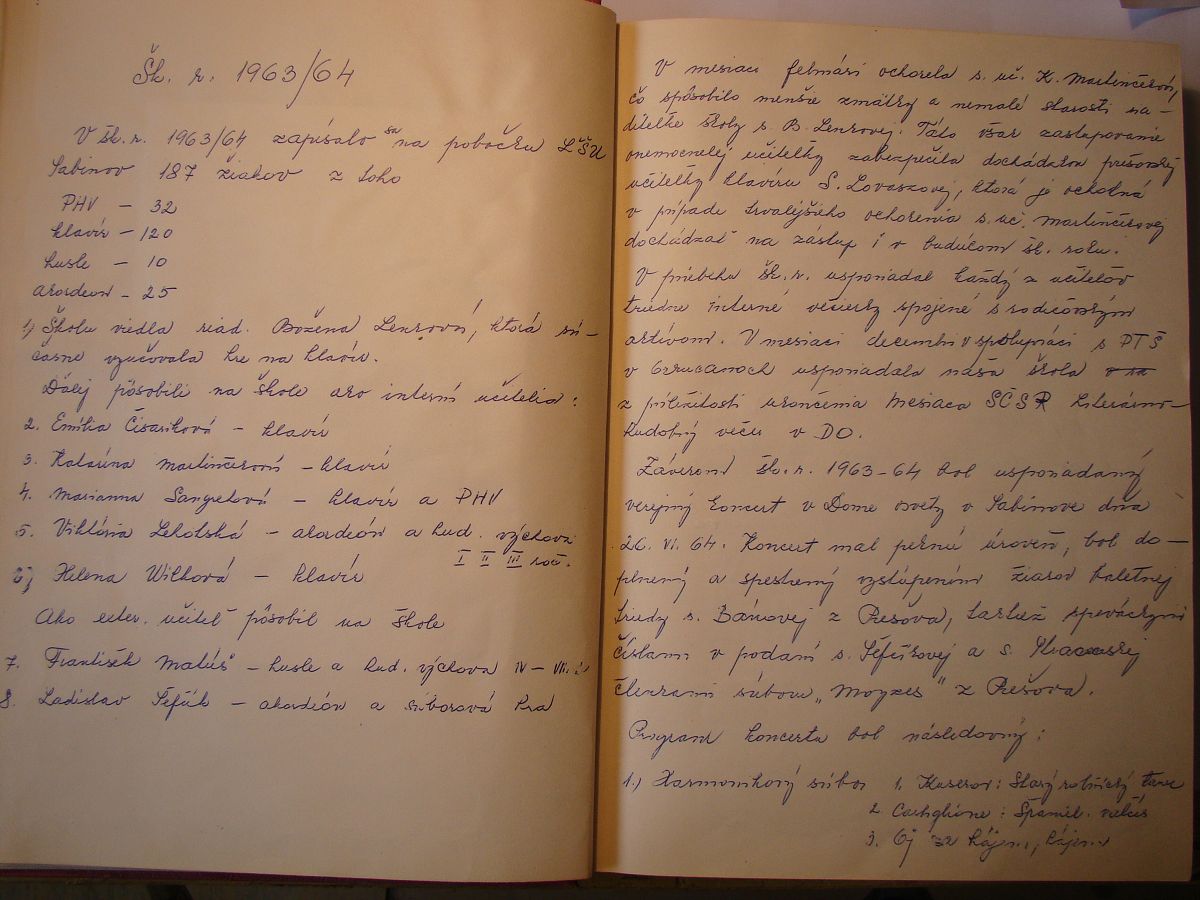 Šk. r. 1963/64
V šk. r. 1963/64 zapísalo sa na pobočku LŠU
Sabinov 187 žiakov z toho
PHV – 32
klavír – 120
husle – 10
akordeon – 25
1) Školu viedla riad. Božena Lenková, ktorá sú-
časne vyučovala hre na klavír.
Ďalej pôsobili na škole ako interní učitelia:
2. Emília Čisariková – klavír
3. Katarína Martinčeková – klavír
4. Marianna Sangretová – klavír a PHV
5. Viktória Lehotská – akordeón a hud. výchova
I II III roč.
6) Helena Wilková – klavír
Ako exter. učitel pôsobil na škole
7. František Matúš – husle a hud. výchova IV – VII.
8. Ladislav Šéfčík – akordeón a súborová hra
V mesiaci februári ochorela s. uč. K. Martinčeková,
čo spôsobilo menšie zmätky a nemalé starosti ria-
diteľke školy s. B. Lenkovej. Táto však zastupovanie
onemocnelej učiteľky zabezpečila dochádzkou prešovskej
učiteľky klavíru S. Lovaszovej, ktorá je ochotná
v prípade trvalejšieho ochorenia s. uč. Martinčekovej
dochádzať na zástup i v budúcom šk. roku.
V priebehu šk. r. usporiadal každý z učiteľov
triedne interné večierky spojené s rodičovským
aktívom. V mesiaci decembri v spolupráci s PTŠ
v usporiadala naša škola
z príležitosti ukončenia Mesiaca SČSP literárno-
hudobný večer v DO.
Záverom šk. r. 1963-64 bol usporiadaný
verejný koncert v Dome osvety v Sabinove dňa
26. VI. 64. Koncert mal peknú úroveň, bol do-
plnený a spestrený vystúpením žiakov baletnej
triedy s. Bánovej z Prešova, taktiež speváckymi
číslami v podaní s. Šéfčíkovej a s.
členkami súboru „Moyzes" z Prešova.
Program koncertu bol následovný:
1.) Harmonikový súbor 1. Kuserov: Starý roľnícky tanec
2. Castiglione: Španiel. valčík
3. Ej za hájom, hájom